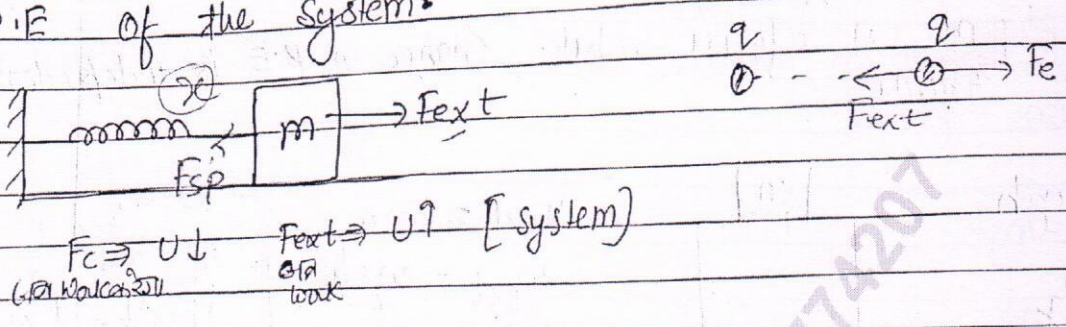 P.E of the system.
x
m
Fext
Fsp
q q
Fe
Fext
Fc ⇒ U↓ Fext ⇒ U↑ [system]
work
774207